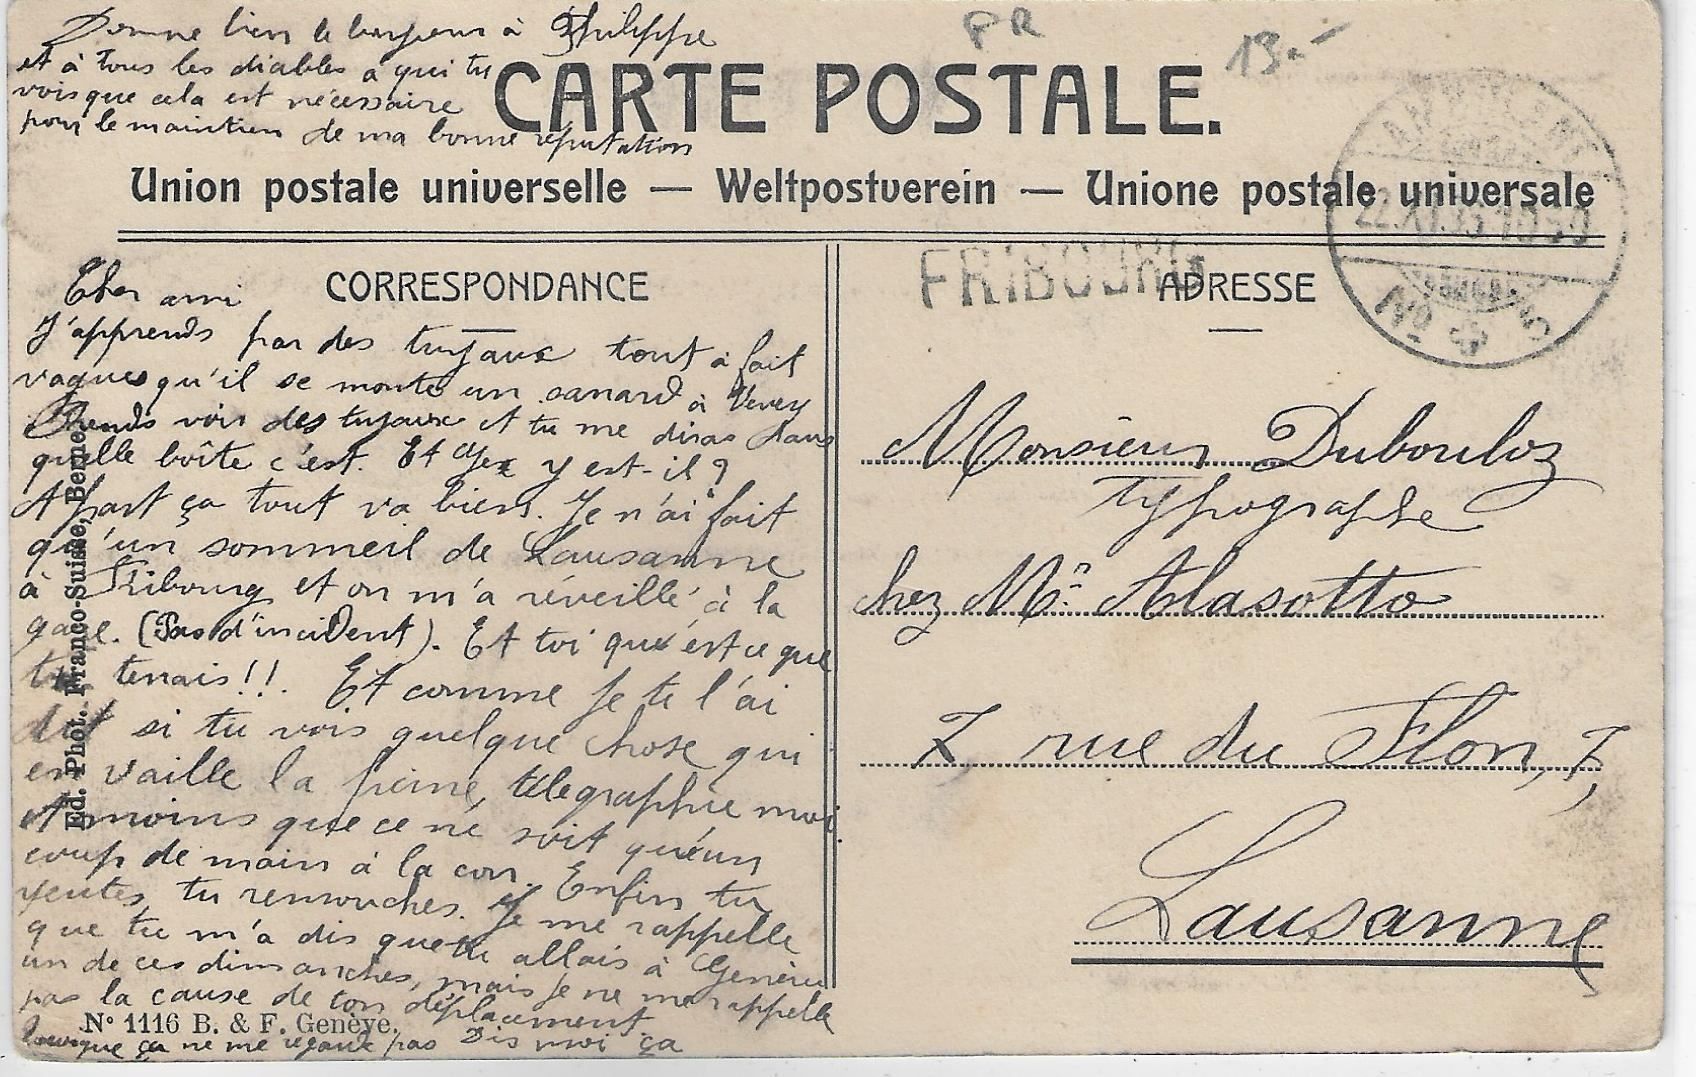 Donne bien le bonjour à Philippe
et à tous les diables à qui tu
vois que cela est nécessaire
pour le maintien de ma bonne réputation
PR
13.-
CARTE POSTALE.
Union postale universelle — Weltpostverein — Unione postale universale
CORRESPONDANCE
FRIBOURG
ADRESSE
Cher ami
J'apprends par des tuyaux tout à fait
vagues qu'il se monte un canard à Vevey
Prends voir des tuyaux et tu me diras dans
quelle boîte c'est. Et y est-il?
A part ça tout va bien. Je n'ai fait
qu'un sommeil de Lausanne
à Fribourg et on m'a réveillé à la
gare. (Pas d'incident). Et toi qu'est ce que
tu tenais!!. Et comme je te l'ai
dit si tu vois quelque chose qui
en vaille la peine, télégraphie moi
A moins que ce ne soit qu'un
coup de main à la con. Enfin tu
tu Je me rappelle
que tu m'a dis que tu allais à Genève
un de ces dimanches, mais je ne me rappelle
pas la cause de ton déplacement
ça ne me regarde pas Dis moi ça
Ed. Phot. Franco-Suisse, Berne.
N° 1116 B. & F. Genève.
Monsieur Dubouloz
typographe
chez Mr. Alasotto
7 rue du Flon, 7,
Lausanne